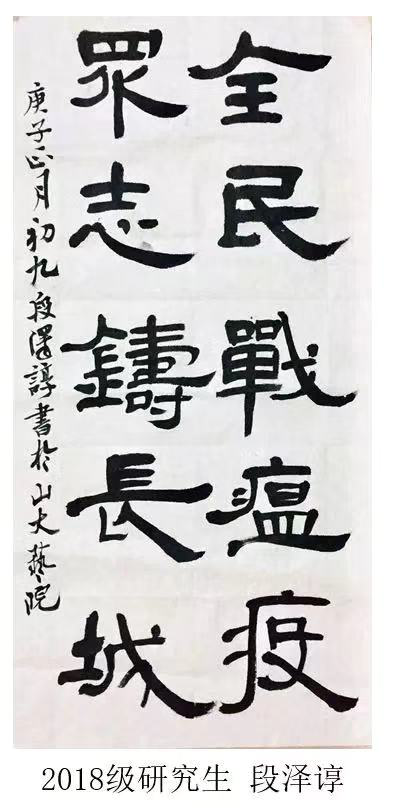 全民戰瘟疫
眾志鑄長城
庚子正月初九段澤諄書於山大藝院
2018级研究生 段泽谆